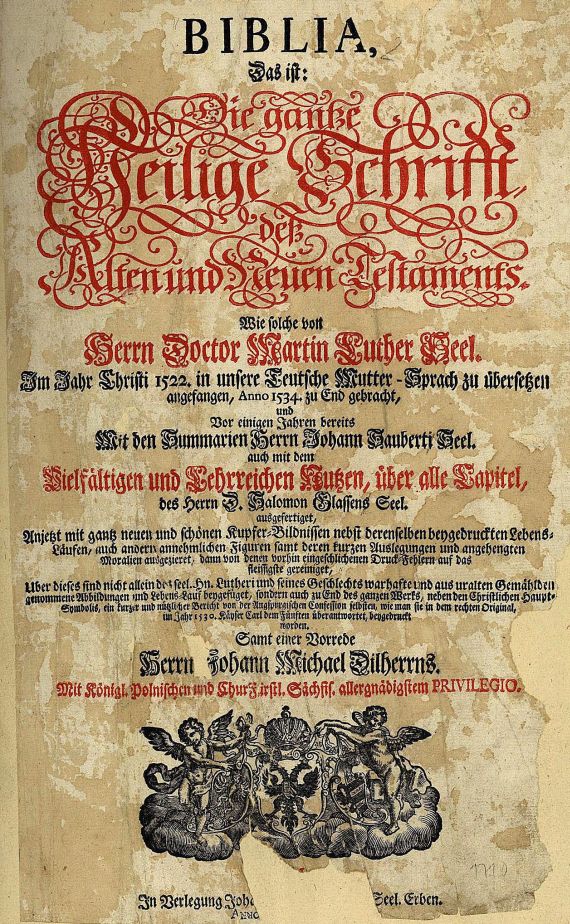 BIBLIA,
Das ist:
Die gantze
Heilige Schrifft,
deß
Alten und Neuen Testaments.
Wie solche von
Herrn Doctor Martin Luther Seel.
Im Jahr Christi 1522. in unsere Teutsche Mutter-Sprach zu übersetzen
angefangen, Anno 1534. zu End gebracht,
und
Vor einigen Jahren bereits
Mit den Summarien Herrn Johann Sauberti Seel.
auch mit dem
Vielfältigen und Lehrreichen Nutzen, über alle Capitel,
des Herrn D. Salomon Glassens Seel.
ausgefertiget,
Anjetzt mit gantz neuen und schönen Kupfer-Bildnissen nebst derenselben beygedruckten Lebens-
Läufen, auch andern annehmlichen Figuren samt deren kurzen Auslegungen und angehengten
Moralien ausgezieret; dann von denen vorhin eingeschlichenen Druck-Fehlern auf das
fleissigste gereiniget,
Uber dieses sind nicht allein des seel. Hn. Lutheri und seines Geschlechts warhafte und aus uralten Gemählden
genommene Abbildungen und Lebens-Lauf beygefüget, sondern auch zu End des ganzen Werks, neben den Christlichen Haupt-
Symbolis, ein kurzer und nützlicher Bericht von der Augspurgischen Confession selbsten, wie man sie in dem rechten Original,
im Jahr 1530. Käyser Carl dem Fünften überantwortet, beygedruckt
worden.
Samt einer Vorrede
Herrn Johann Michael Dilherrns.
Mit Königl. Polnischen und ChurFürstl. Sächsis. allergnädigstem PRIVILEGIO.
In Verlegung Joh Seel. Erben.